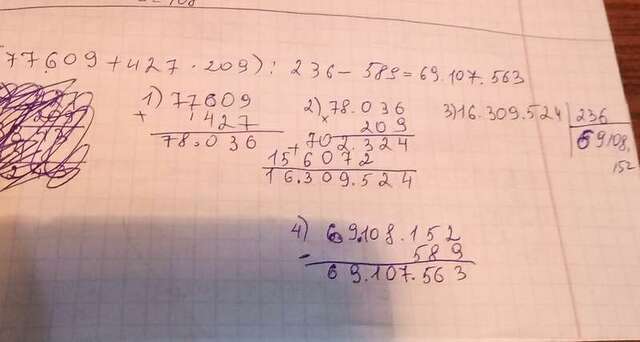 108
(77.609+427·209):236-589=69.107.563
1) 77609
+ 427
78.036
2) 78.036
× 209
+ 702.324
156072
16.309.524
3) 16.309.524 | 236
69108,
152
4) 69.108.152
- 589
69.107.563